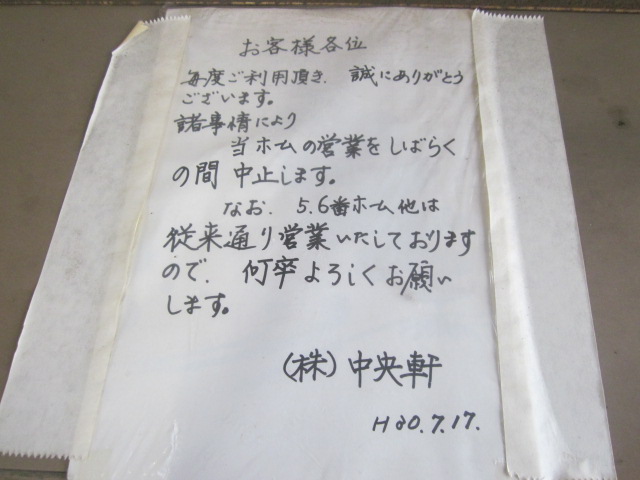 お客様各位
毎度ご利用頂き、誠にありがとう
ございます。
諸事情により
当ホームの営業をしばらく
の間中止します。
なお、5.6番ホーム他は
従来通り営業いたしております
ので、何卒よろしくお願い
します。
(株)中央軒
H30.7.17.